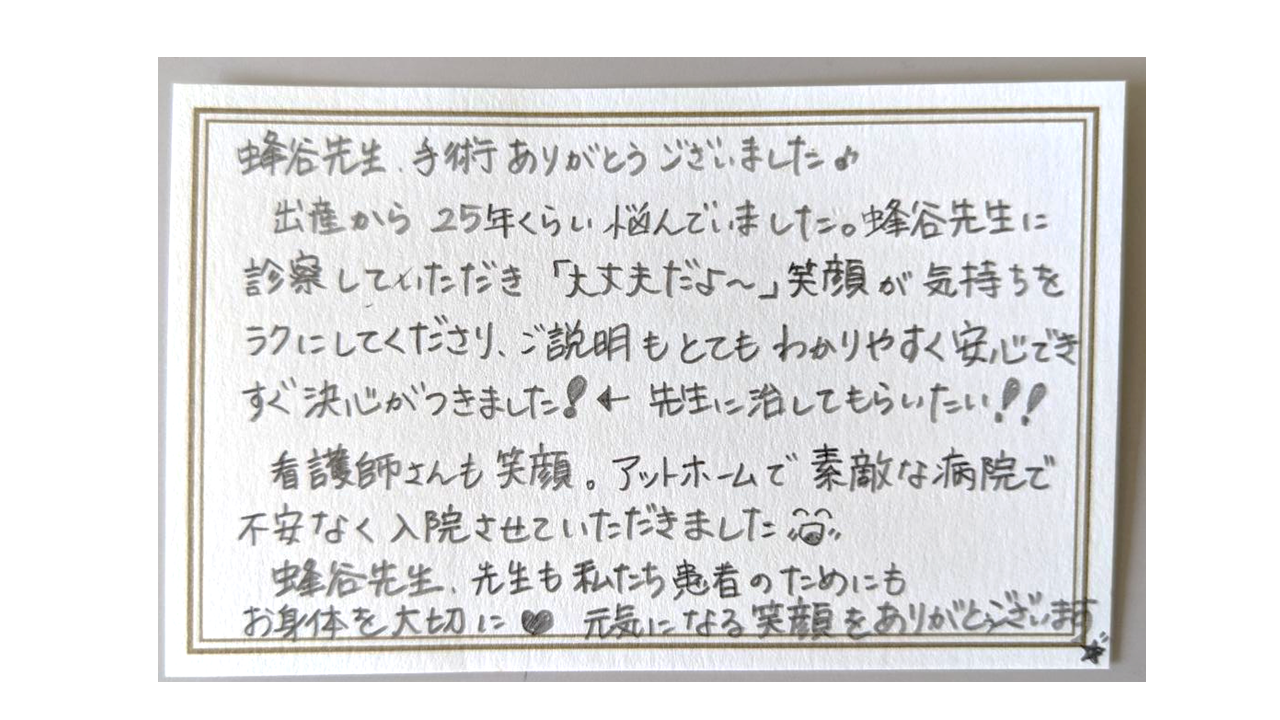 蜂谷先生、手術ありがとうございました♪
出産から25年くらい悩んでいました。蜂谷先生に
診察していただき「大丈夫だよ〜」笑顔が気持ちを
ラクにしてくださり、ご説明もとてもわかりやすく安心でき
すぐ決心がつきました!← 先生に治してもらいたい!!
看護師さんも笑顔。アットホームで素敵な病院で
不安なく入院させていただきました
蜂谷先生、先生も私たち患者のためにも
お身体を大切に♥ 元気になる笑顔をありがとうございます